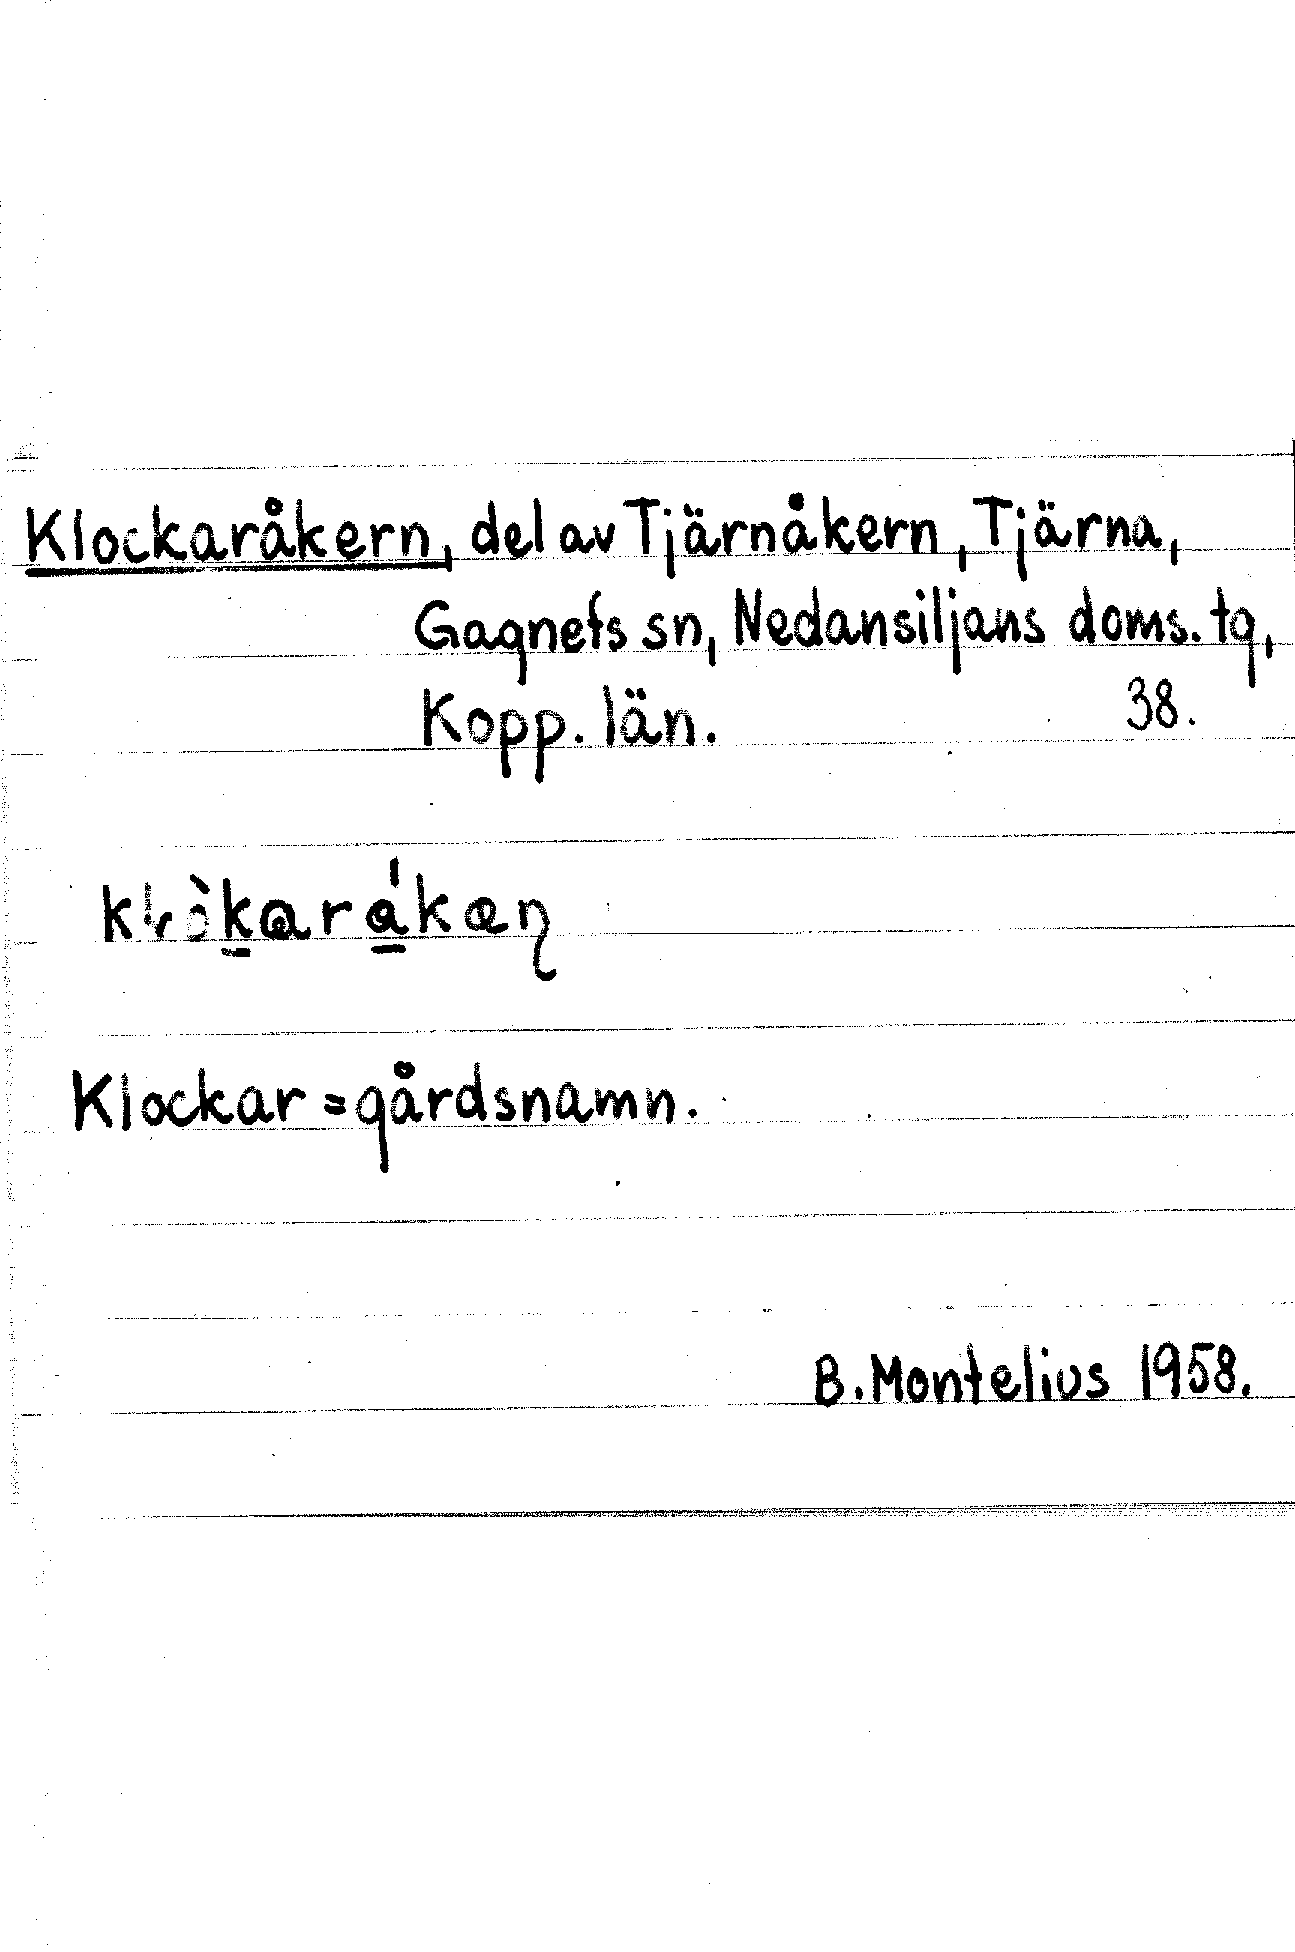 Klockaråkern, del av Tjärnåkern, Tjärna,
Gagnefs sn, Nedansiljans doms. tg,
Kopp. län. 38.
Klockar = gårdsnamn.
B. Montelius 1958.